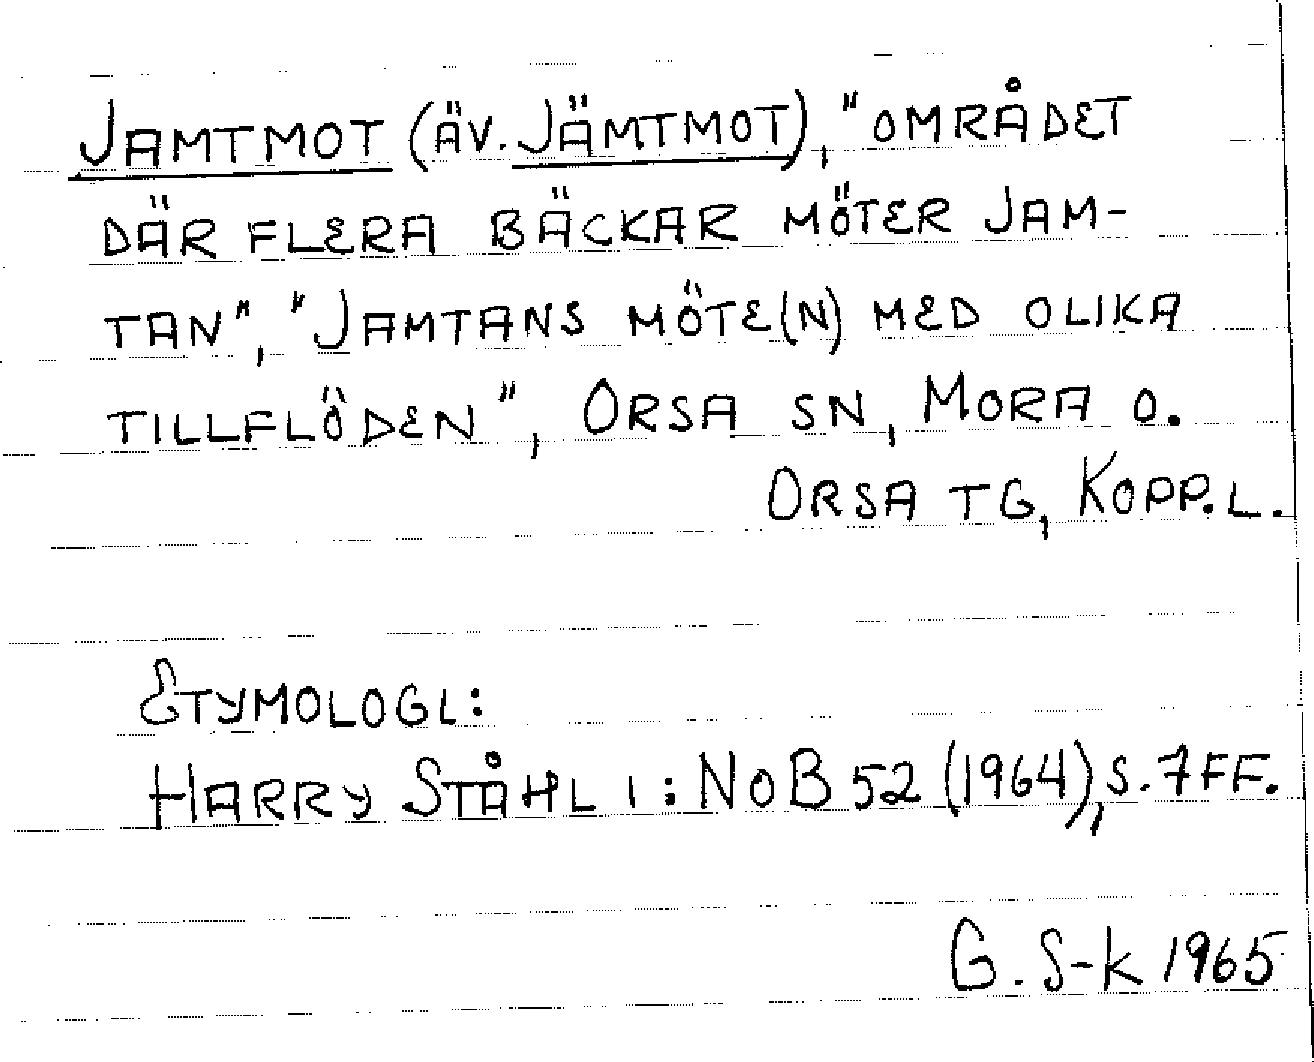 JAMTMOT (ÄV. JÄMTMOT), "OMRÅDET
DÄR FLERA BÄCKAR MÖTER JAM-
TAN", "JAMTANS MÖTE(N) MED OLIKA
TILLFLÖDEN", ORSA SN, MORA O.
ORSA TG, KOPP. L.
ETYMOLOGI:
HARRY STÅHL I: NOB 52 (1964), S. 7 FF.
G. S-K 1965